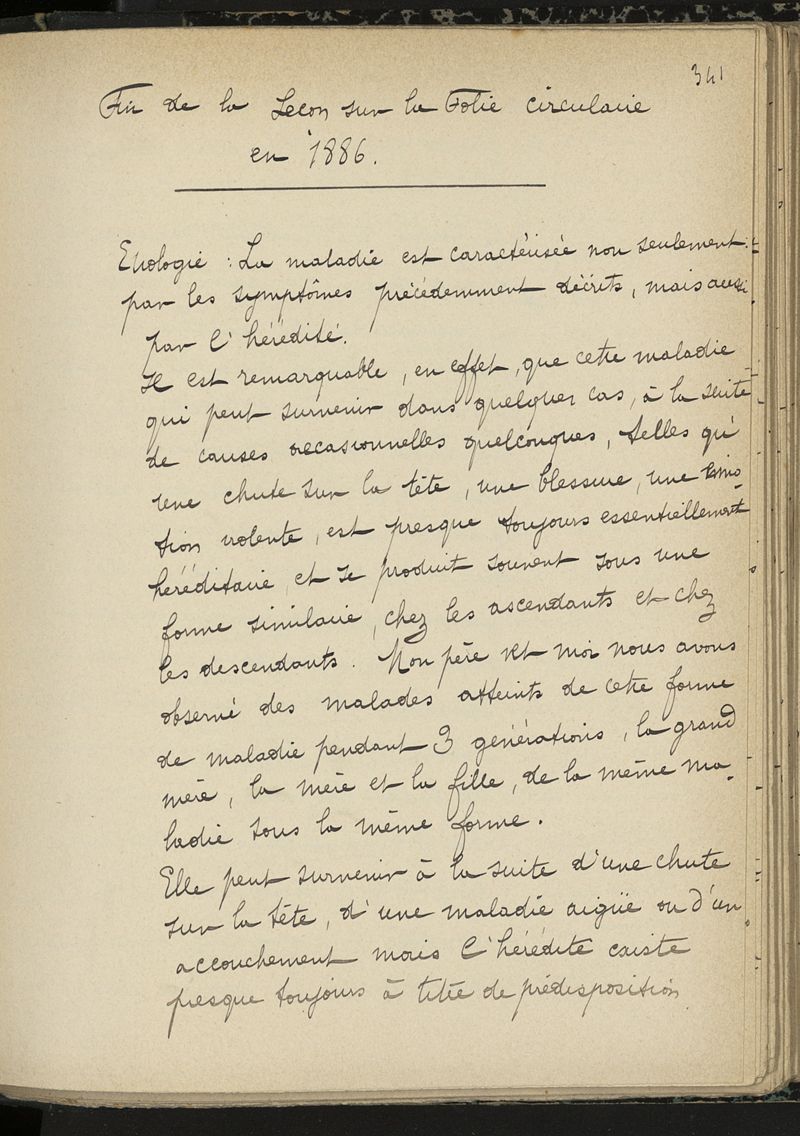 341
Fin de la Leçon sur la Folie circulaire
en 1886.
Etiologie : La maladie est caractérisée non seulement
par les symptômes précédemment décrits, mais aussi
par l'hérédité.
Il est remarquable, en effet, que cette maladie
qui peut survenir dans quelques cas, à la suite
de causes occasionnelles quelconques, telles qu'
une chute sur la tête, une blessure, une émo-
tion violente, est presque toujours essentiellement
héréditaire, et se produit souvent sous une
forme similaire, chez les ascendants et chez
les descendants. Mon père et moi nous avons
observé des malades atteints de cette forme
de maladie pendant 3 générations, la grand
mère, la mère et la fille, de la même ma-
ladie sous la même forme.
Elle peut survenir à la suite d'une chute
sur la tête, d'une maladie aigüe ou d'un
accouchement mais l'hérédité existe
presque toujours à titre de prédisposition